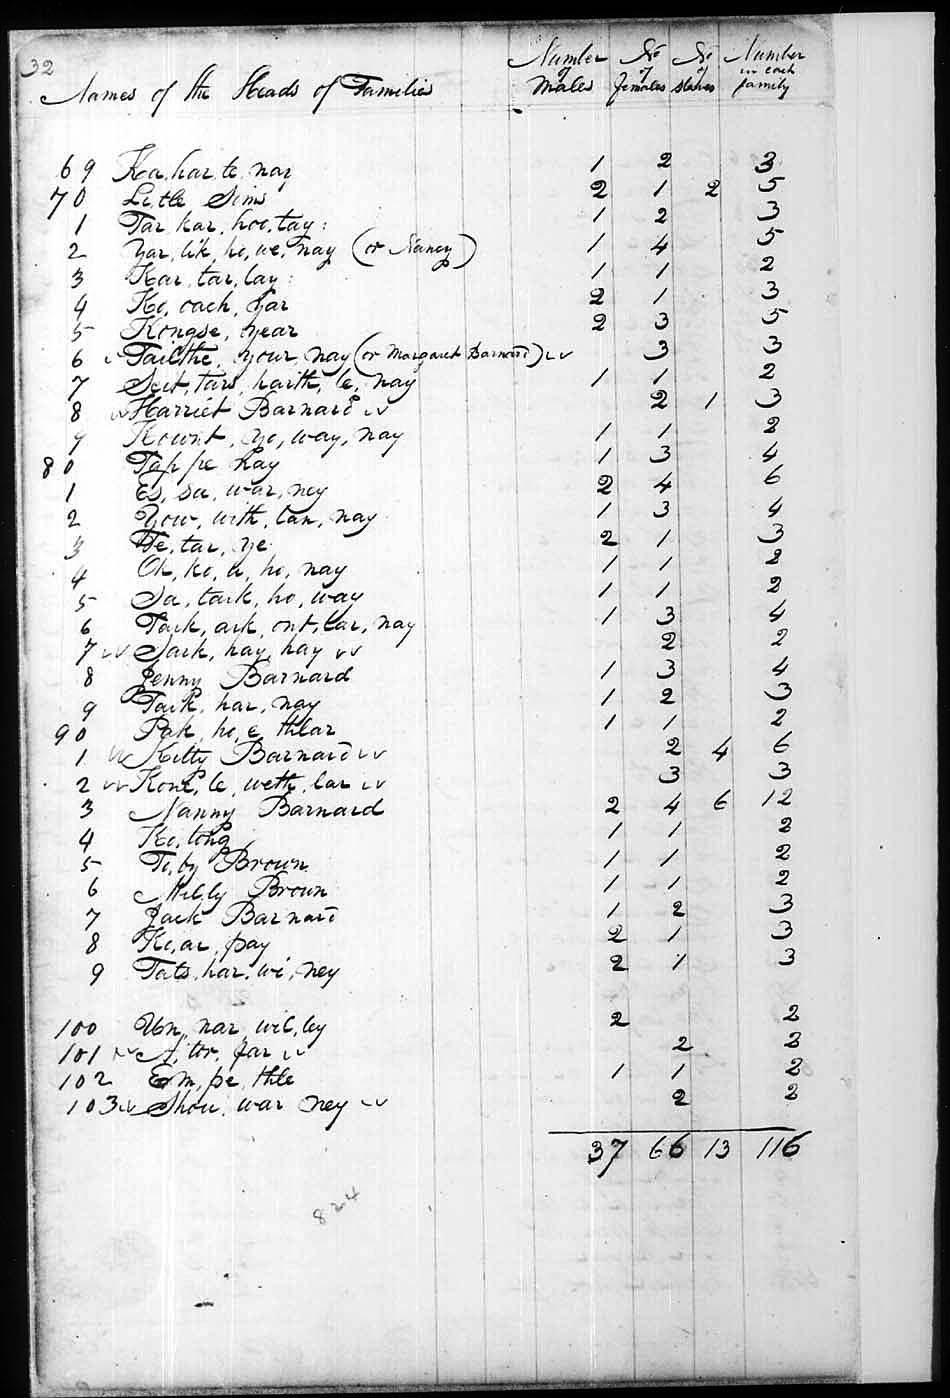 32
Names of the Heads of Families Number of Males No of females No of slaves Number in each family
69 Ka, har, te, nay 1 2 3
70 Little Sims 2 1 2 5
1 Tar, kar, hoo, tay: 1 2 3
2 Yar, lik, ho, we, nay (or Nancy) 1 4 5
3 Kar, tar, lay: 1 1 2
4 Ko, oach, har 2 1 3
5 Kongse, year 2 3 5
6 Tailthe, your, nay (or Margaret Barnard) 3 3
7 Seit, tars, harth, le, nay 1 1 2
8 Harriet Barnard 2 1 3
9 Kownt, yo, way, nay 1 1 2
80 Tap pe hay 1 3 4
1 Es, sa, war, ney 2 4 6
2 Yow, with, lan, nay 1 3 4
3 Te, tar, ye 2 1 3
4 Oh, ko, a, ho, nay 1 1 2
5 Sa, tark, ho, way 1 1 2
6 Tark, ark, ont, lar, nay 1 3 4
7 Sark, hay, hay 2 2
8 Jenny Barnard 1 3 4
9 Tark, har, nay 1 2 3
90 Pak, ho, e, thlar 1 1 2
1 Kitty Barnard 2 4 6
2 Kont, le, weth, lar 3 3
3 Nanny Barnard 2 4 6 12
4 Ko, tong 1 1 2
5 To, by Brown 1 1 2
6 Milly Brown 1 1 2
7 Jack Barnard 1 2 3
8 Ko, ar, pay 2 1 3
9 Tats, har, wi, ney 2 1 3
100 Un, nar, wil, ly 2 2
101 A, tor, far 2 2
102 Em, pe, thle 1 1 2
103 Shou, war ney 2 2
37 66 13 116
824